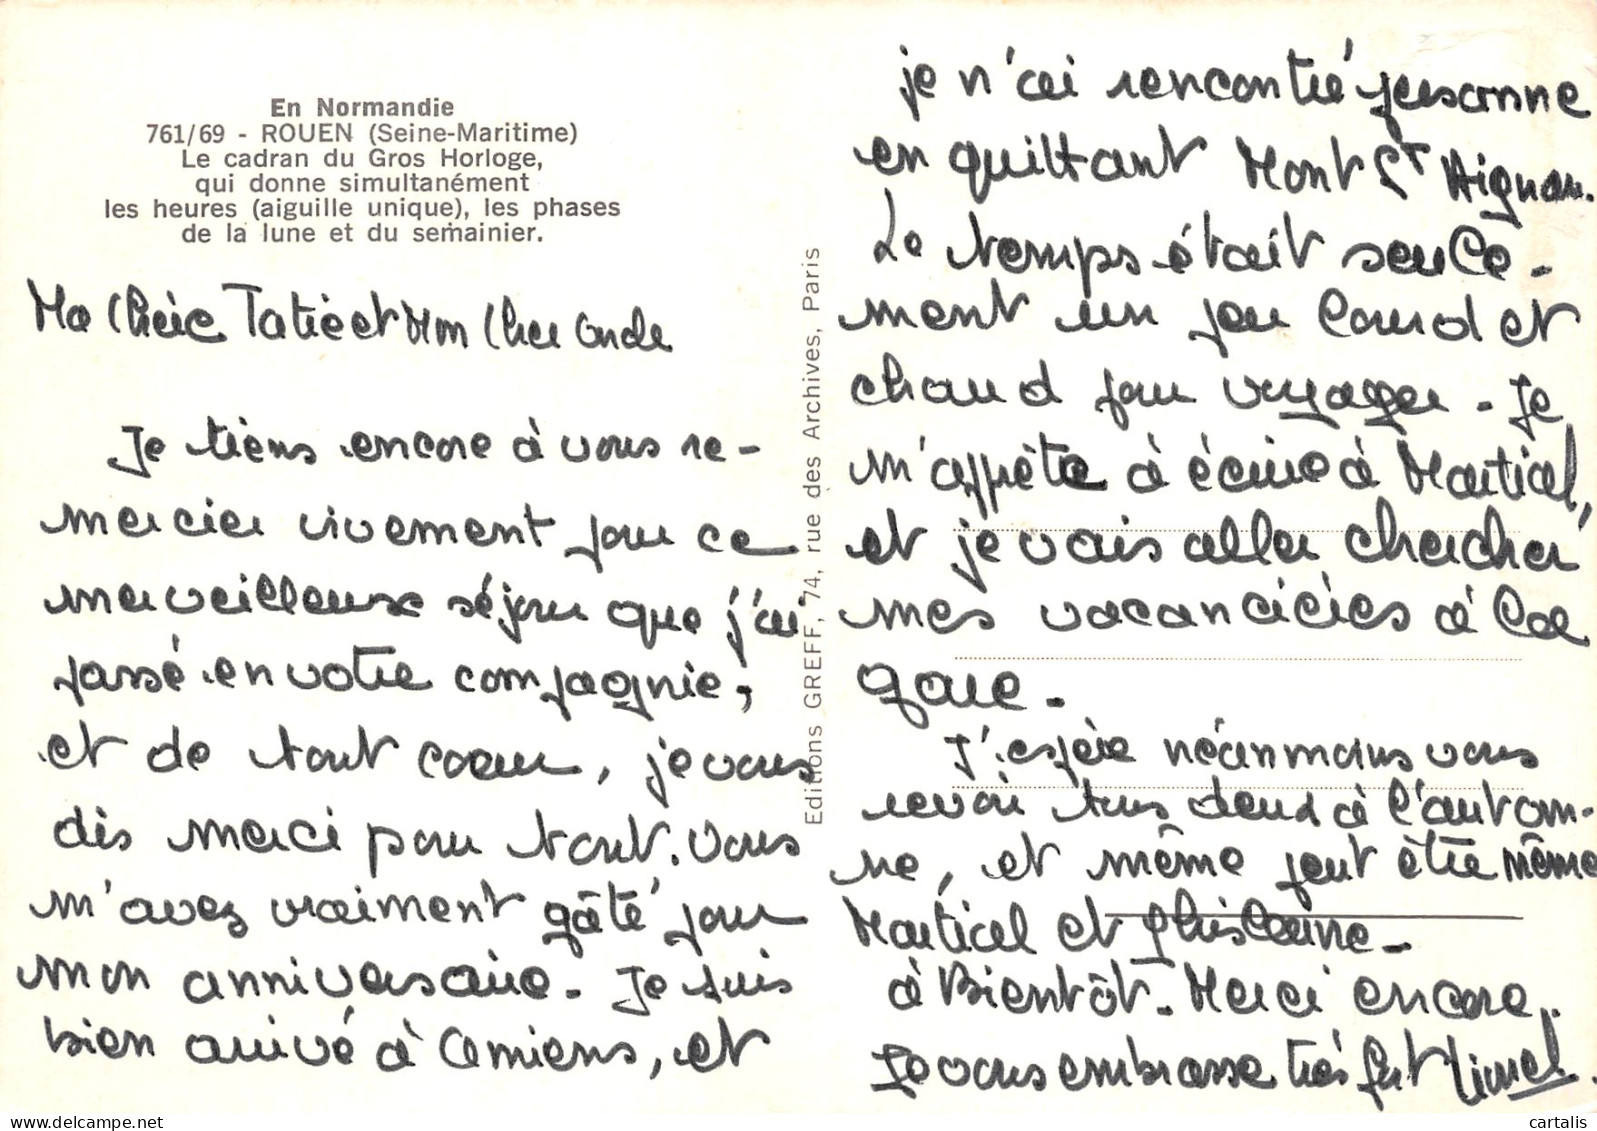 En Normandie
761/69 - ROUEN (Seine-Maritime)
Le cadran du Gros Horloge,
qui donne simultanément
les heures (aiguille unique), les phases
de la lune et du semainier.
Ma Chère Tatie et Mon Cher Oncle
Je tiens encore à vous re-
mercier vivement pour ce
merveilleux séjour que j'ai
passé en votre compagnie,
et de tout coeur, je vous
dis merci pour tout. Vous
m'avez vraiment gâté pour
mon anniversaire. Je suis
bien arrivé à Amiens, et
Editions GREFF, 74, rue des Archives, Paris
je n'ai rencontré personne
en quittant Mont St Aignan.
Le temps était seule-
ment un peu lourd et
chaud pour voyager. Je
m'apprête à écrire à Martial,
et je vais aller chercher
mes vacanciers à la
gare.
J'espère néanmoins vous
revoir tous deux à l'autom-
ne, et même peut être même
Martial et Ghislaine.
à Bientôt. Merci encore.
Je vous embrasse très fort
cartalis